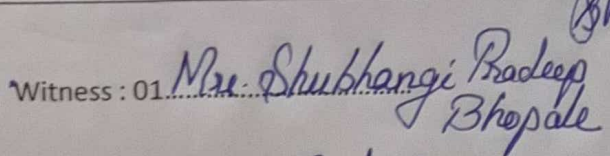 Witness : 01. Mrs. Shubhangi Pradeep
Bhopale